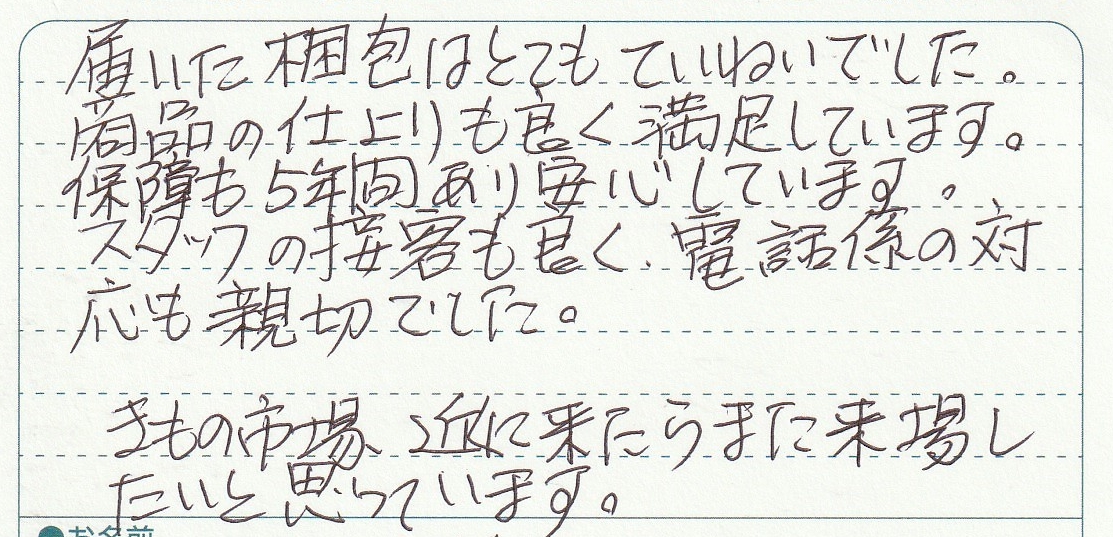 届いた梱包はとてもていねいでした。
商品の仕上りも良く満足しています。
保障も5年間あり安心しています。
スタッフの接客も良く、電話係の対
応も親切でした。
きもの市場、近に来たらまた来場し
たいと思っています。
●お名前